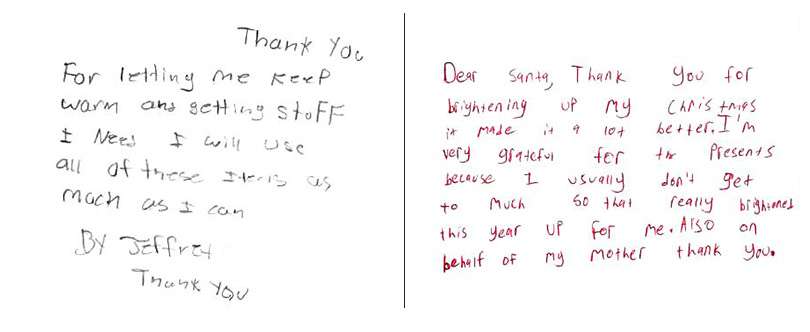 Thank You
For letting me keep
warm and getting stoFF
I Need I will use
all of these Items as
mach as I can
By Jeffrey
Thank You
Dear Santa, Thank You for
brightening up my Christmas
it made it a lot better. I'm
very grateful for the Presents
because I usually don't get
to much so that really brightened
this year up for me. Also on
behalf of my mother thank you.